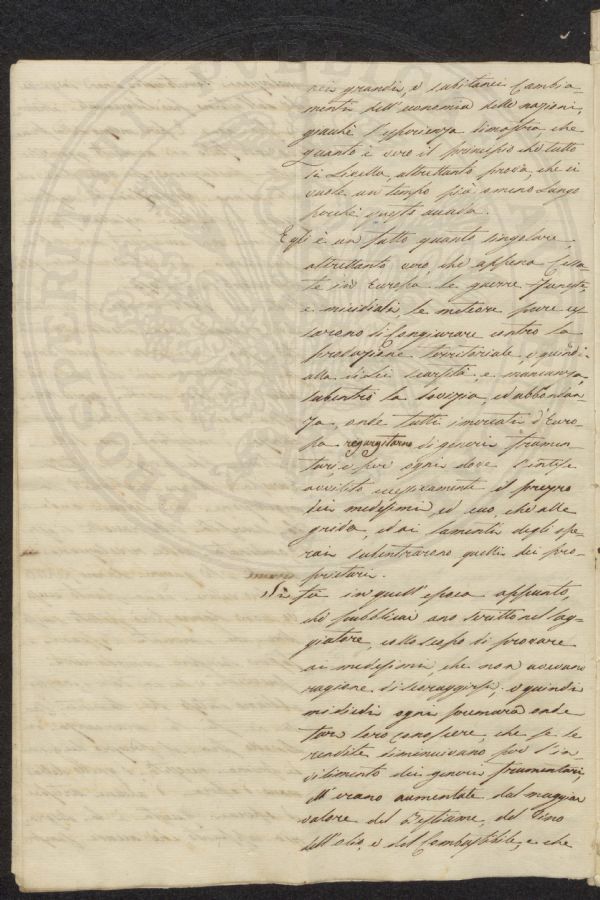 nei grandi, e subitanei Cambia-
menti dell'economia delle nazioni,
giacchè l'esperienza dimostra, che
quanto è vero il principio che tutto
si Livella, altrettanto prova, che ci
vuole un tempo più o meno Lungo
perchè questo accada.
Egli è un fatto quanto singolare,
altrettanto vero, che appena Cessa-
te in Europa le guerre funeste,
e micidiali, le meteore pure ces-
sarono di Congiurare contro la
produzione territoriale, e quindi
alla di Lei scarsità, e mancanza,
subentrò la dovizia, ed abbondan-
za, onde tutti i mercati d'Euro-
pa regurgitarono di generi frumen-
tari, e per ogni dove s'intese
avvilito eccessivamente il prezzo
dei medesimi, ed ecco, che alle
grida, ed ai lamenti degli ope-
rai subentrarono quelli dei pro-
prietari.
Fu in quell'epoca appunto,
che pubblicai uno scritto nel
collo scopo di provare
ai medesimi, che non avevano
ragione di scoraggirsi, e quindi
mi diedi ogni premura onde
far loro conoscere, che se le
rendite diminuivano per l'in-
vilimento dei generi frumentari,
erano aumentate dal maggior
valore del Bestiame, del Vino
dell'olio, e del Combustibile, e che